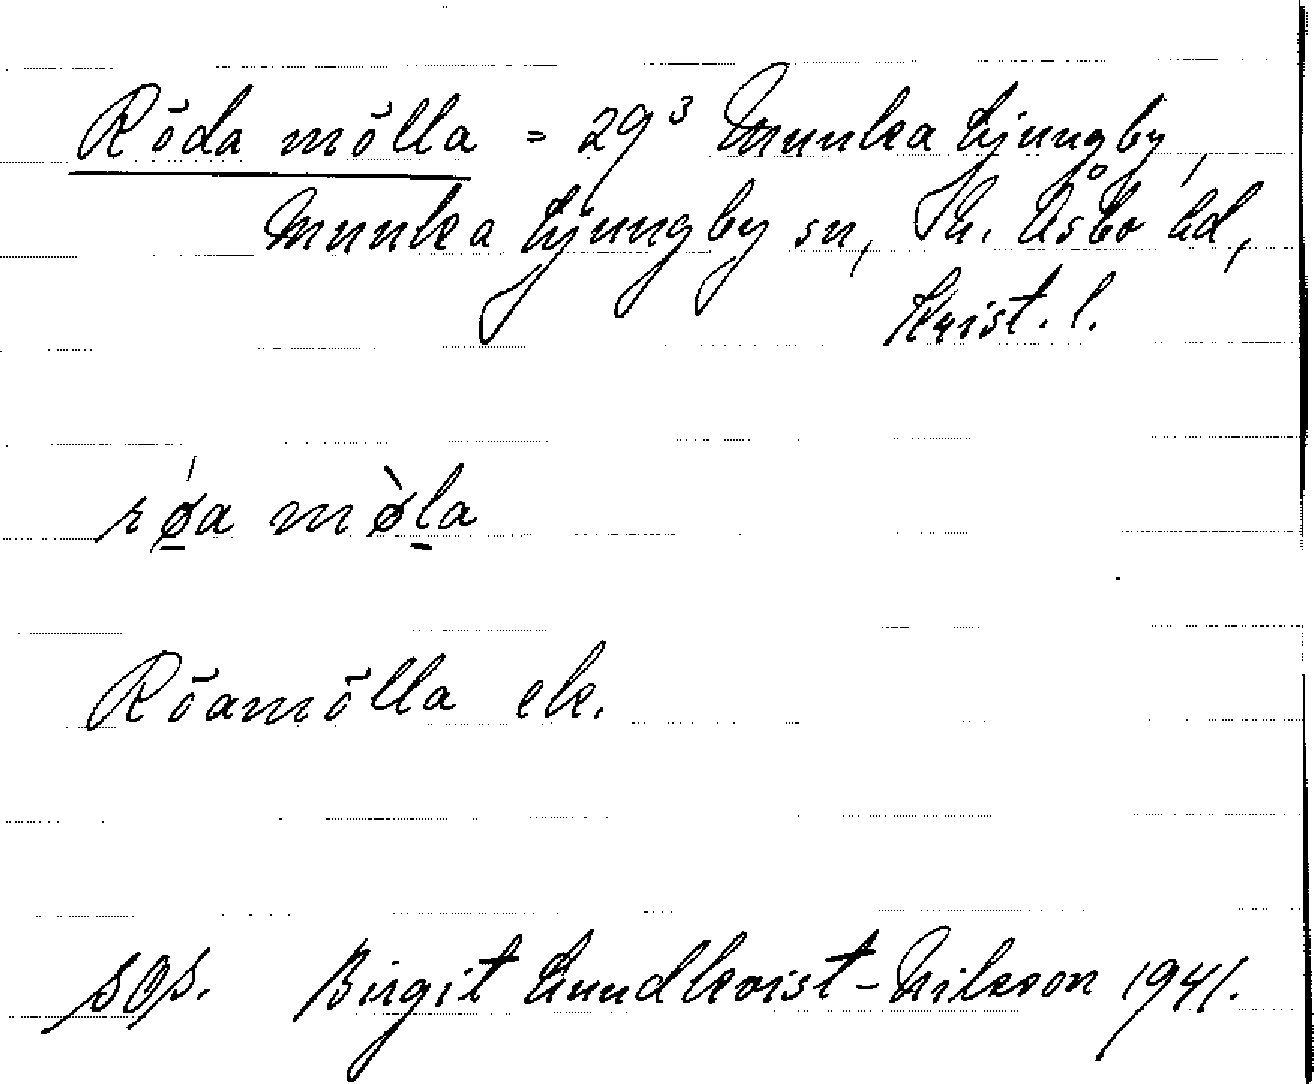 Röda mölla = 29³ Munka Ljungby,
Munka Ljungby sn, Sk. Åsbo hd,
Krist. l.
rǿ̲a mø̀l̲a
Röamölla ek.
SOS. Birgit Lundkvist-Nilsson 1941.